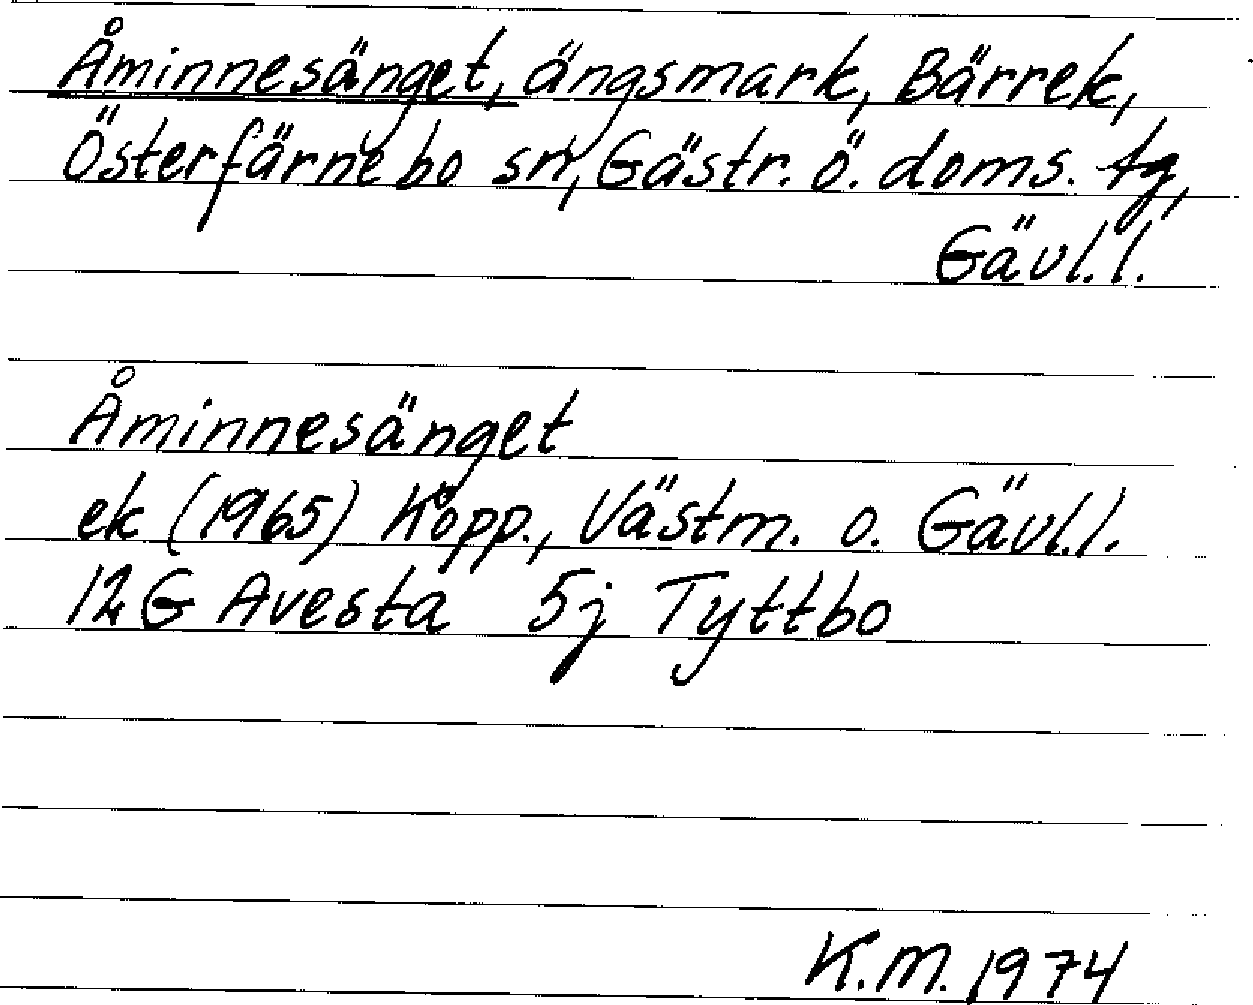 Åminnesänget, ängsmark, Bärrek,
Österfärnebo sn, Gästr. ö. doms. tg,
Gävl. l.
Åminnesänget
ek (1965) Kopp., Västm. o. Gävl. l.
12G Avesta 5j Tyttbo
K.M. 1974